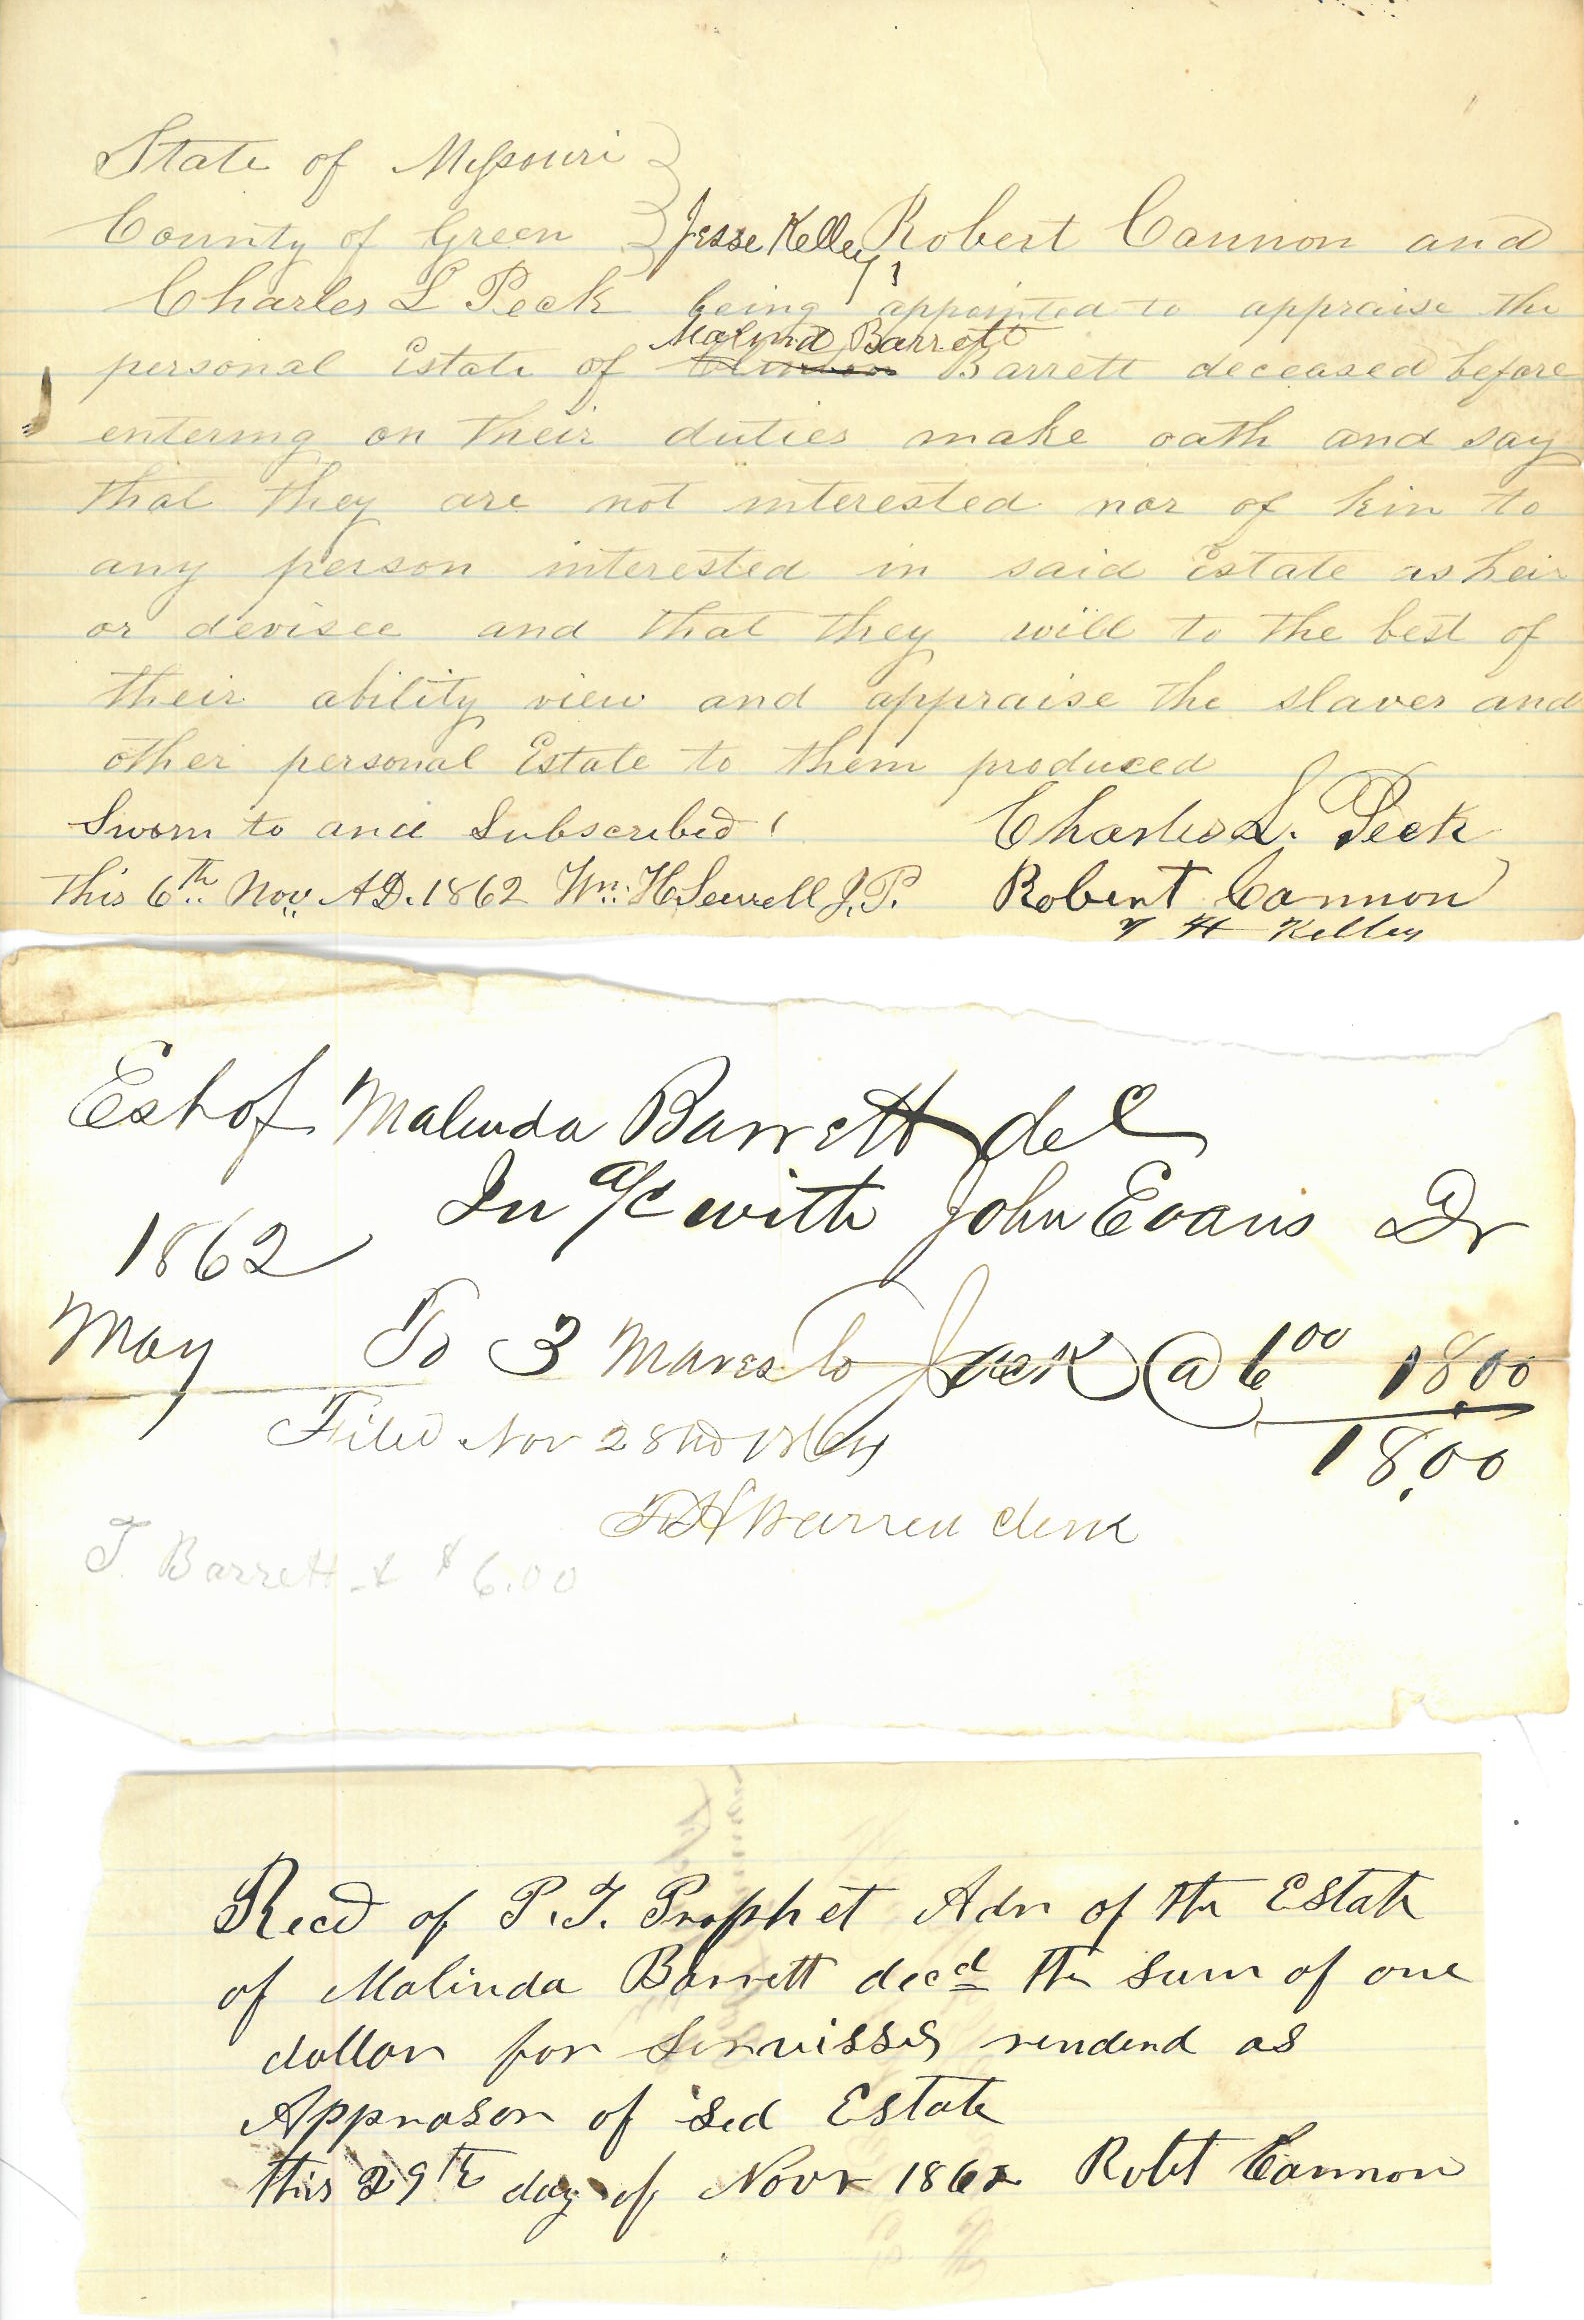 State of Missouri
County of Green Jesse Kelley, Robert Cannon and
Charles L Peck being appointed to appraise the
Malind Barrett
personal Estate of Barrett deceased before
entering on their duties make oath and say
that they are not interested nor of kin to
any person interested in said Estate as heir
or devisee and that they will to the best of
their ability view and appraise the slaves and
other personal Estate to them produced
Sworn to and Subscribed Charles L. Peck
this 6th Nov. A.D. 1862 Wm. H Sewell J.P. Robert Cannon
H Kelley
Est of Malinda Barrett de
In a/c with John Evans Dr
1862
May To 3 Mares to Jack @ 6 00 18.00
18.00
Filed Nov 28 1864
Warren Clerk
T. Barrett $ 6.00
Recd of P. T. Prophet Adm of the Estate
of Malinda Barrett decd the sum of one
dollar for servisses renderd as
Appraser of sed Estate
this 29th day of Novr 1862 Robt Cannon